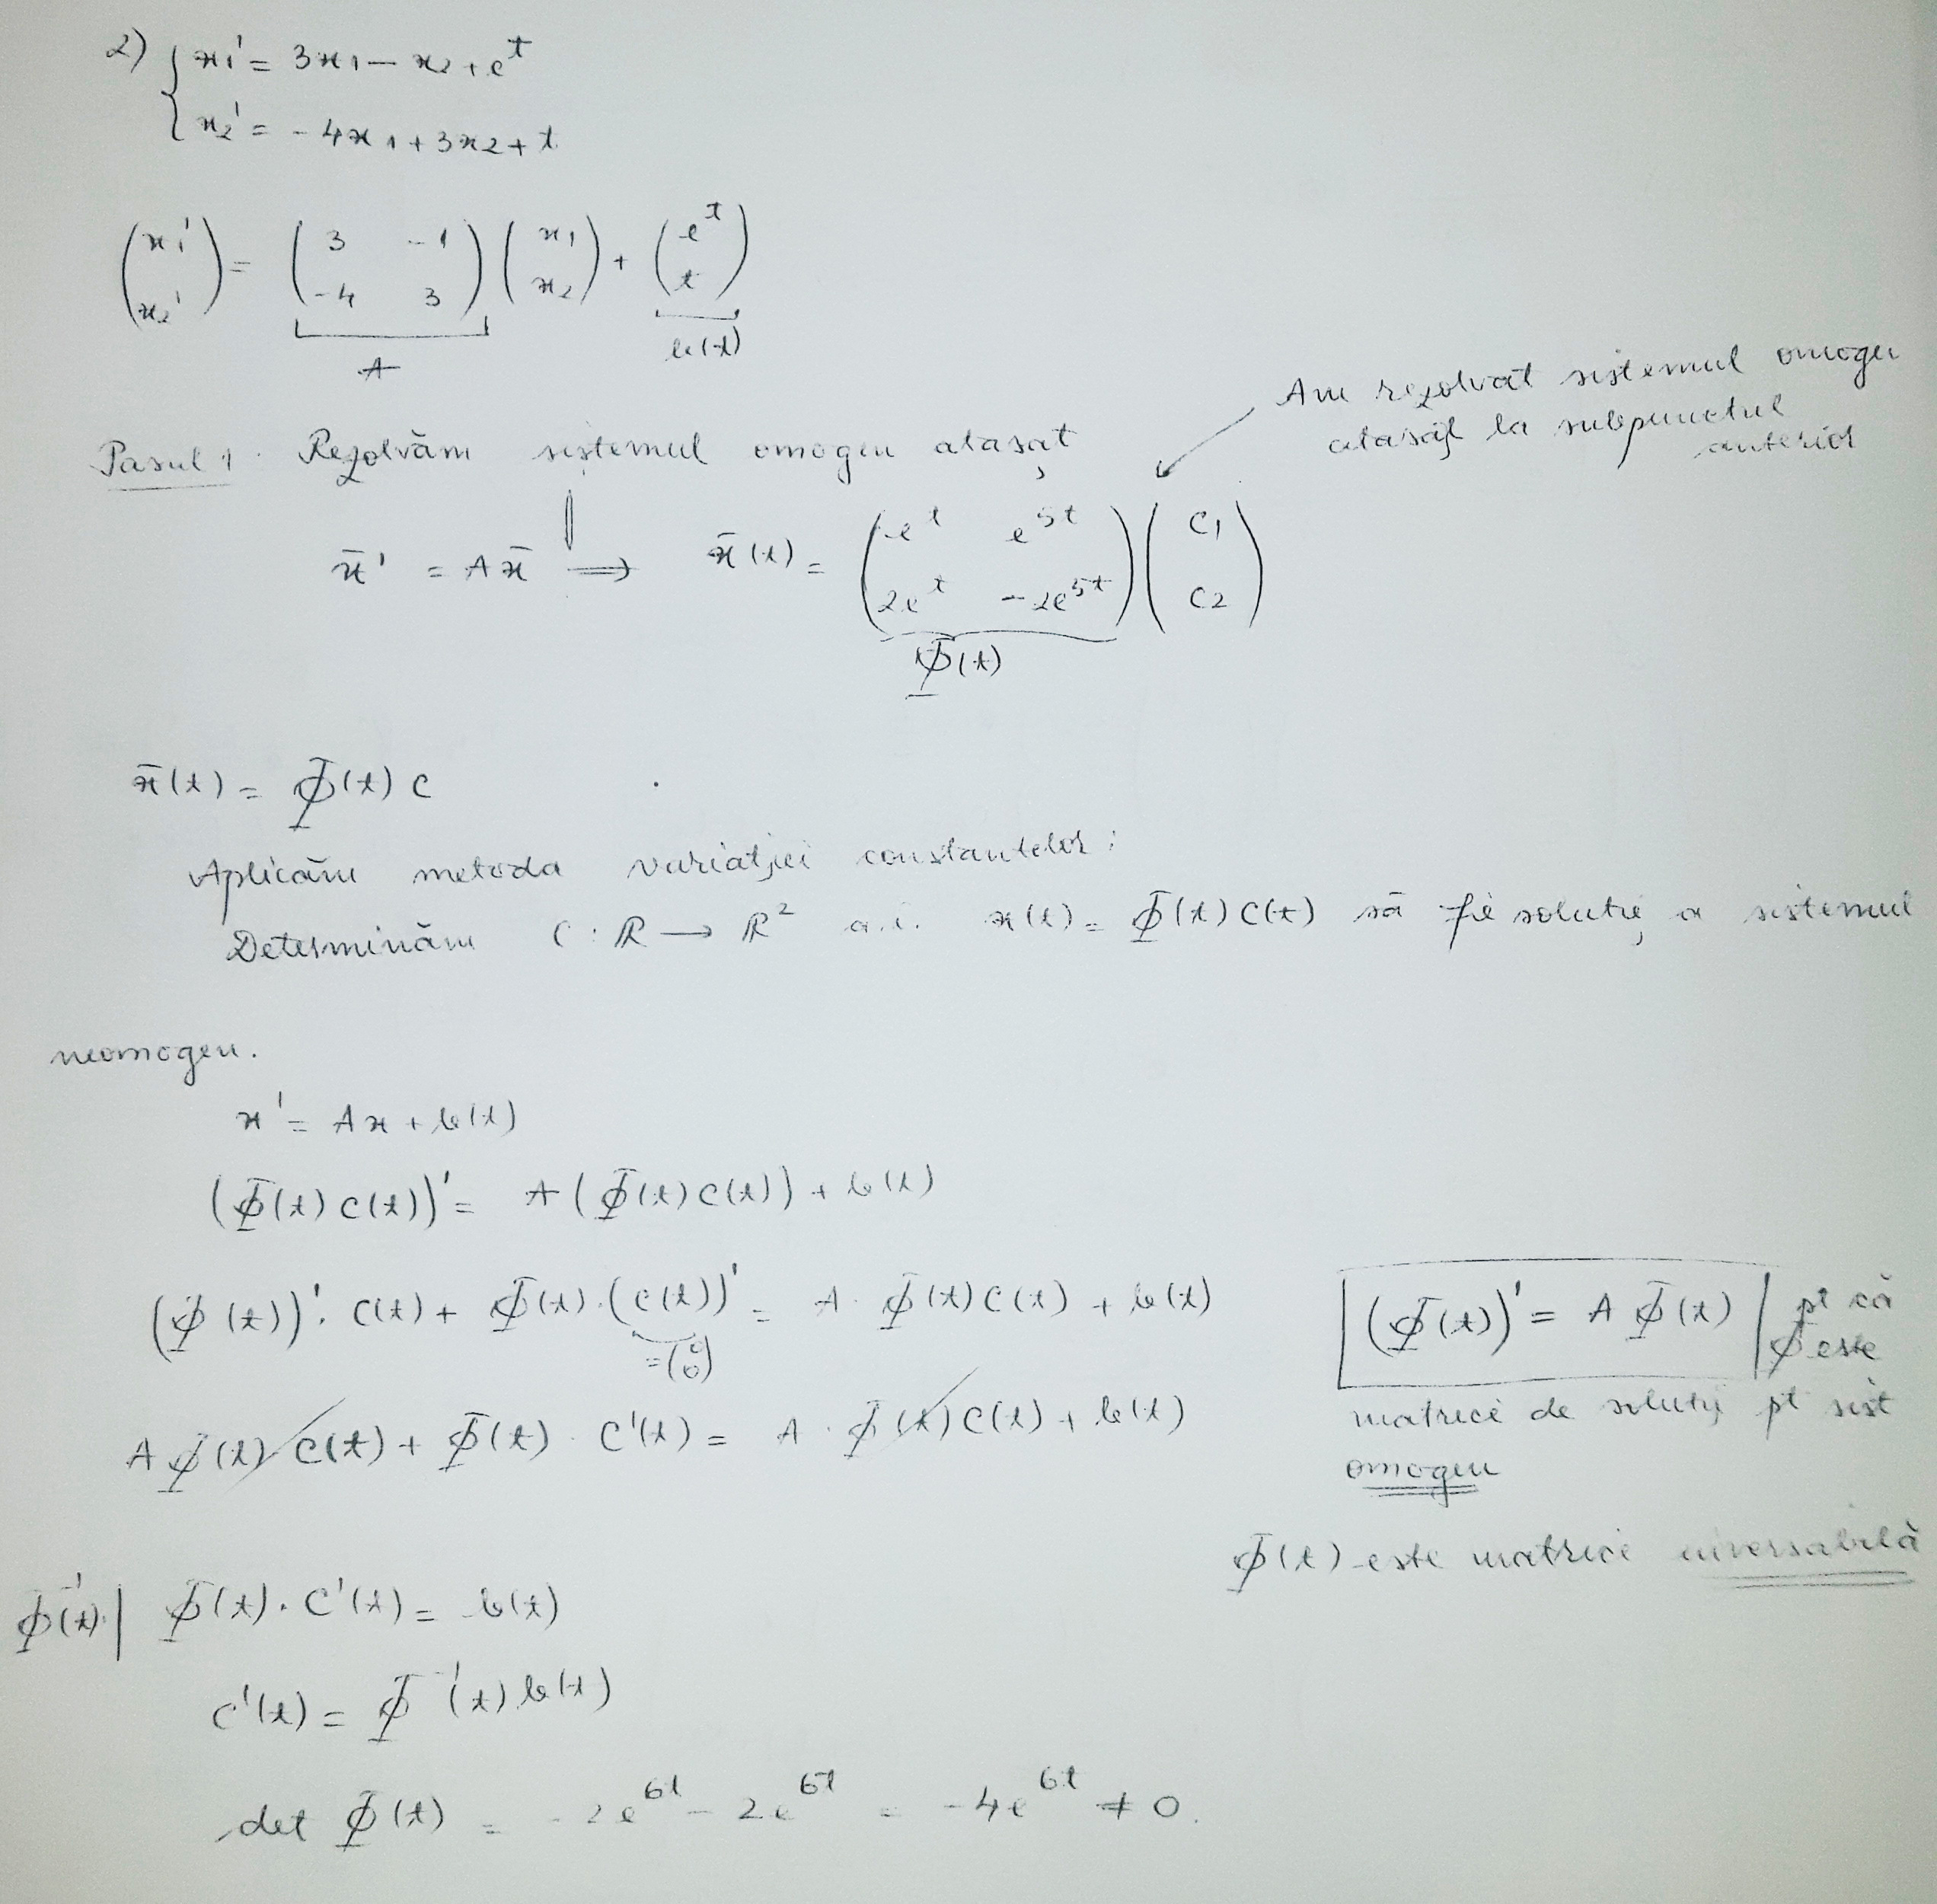 2) { x₁' = 3x₁ - x₂ + e^t
x₂' = -4x₁ + 3x₂ + t
(x₁' x₂') = (3 -1 -4 3) (x₁ x₂) + (e^t t)
A b(t)
Am rezolvat sistemul omogen
atașat la subpunctul
anterior
Pasul 1. Rezolvăm sistemul omogen atașat
x̄' = Ax̄ ⟹ x̄(t) = (e^t e^5t 2e^t -2e^5t) (C₁ C₂)
Φ(t)
x̄(t) = Φ(t) C
Aplicăm metoda variației constantelor:
Determinăm C : ℝ → ℝ² a.î. x(t) = Φ(t) C(t) să fie soluție a sistemul
neomogen.
x' = Ax + b(t)
(Φ(t) C(t))' = A (Φ(t) C(t)) + b(t)
(Φ(t))' · C(t) + Φ(t) · (C(t))' = A · Φ(t) C(t) + b(t)
=(0 0)
(Φ(t))' = A Φ(t) pt că
Φ este
matrice de soluții pt sist
omogen
A Φ(t) C(t) + Φ(t) · C'(t) = A · Φ(t) C(t) + b(t)
Φ(t) este matrice inversabilă
Φ⁻¹(t)· | Φ(t) · C'(t) = b(t)
C'(t) = Φ⁻¹(t) b(t)
det Φ(t) = -2e^6t - 2e^6t = -4e^6t ≠ 0.